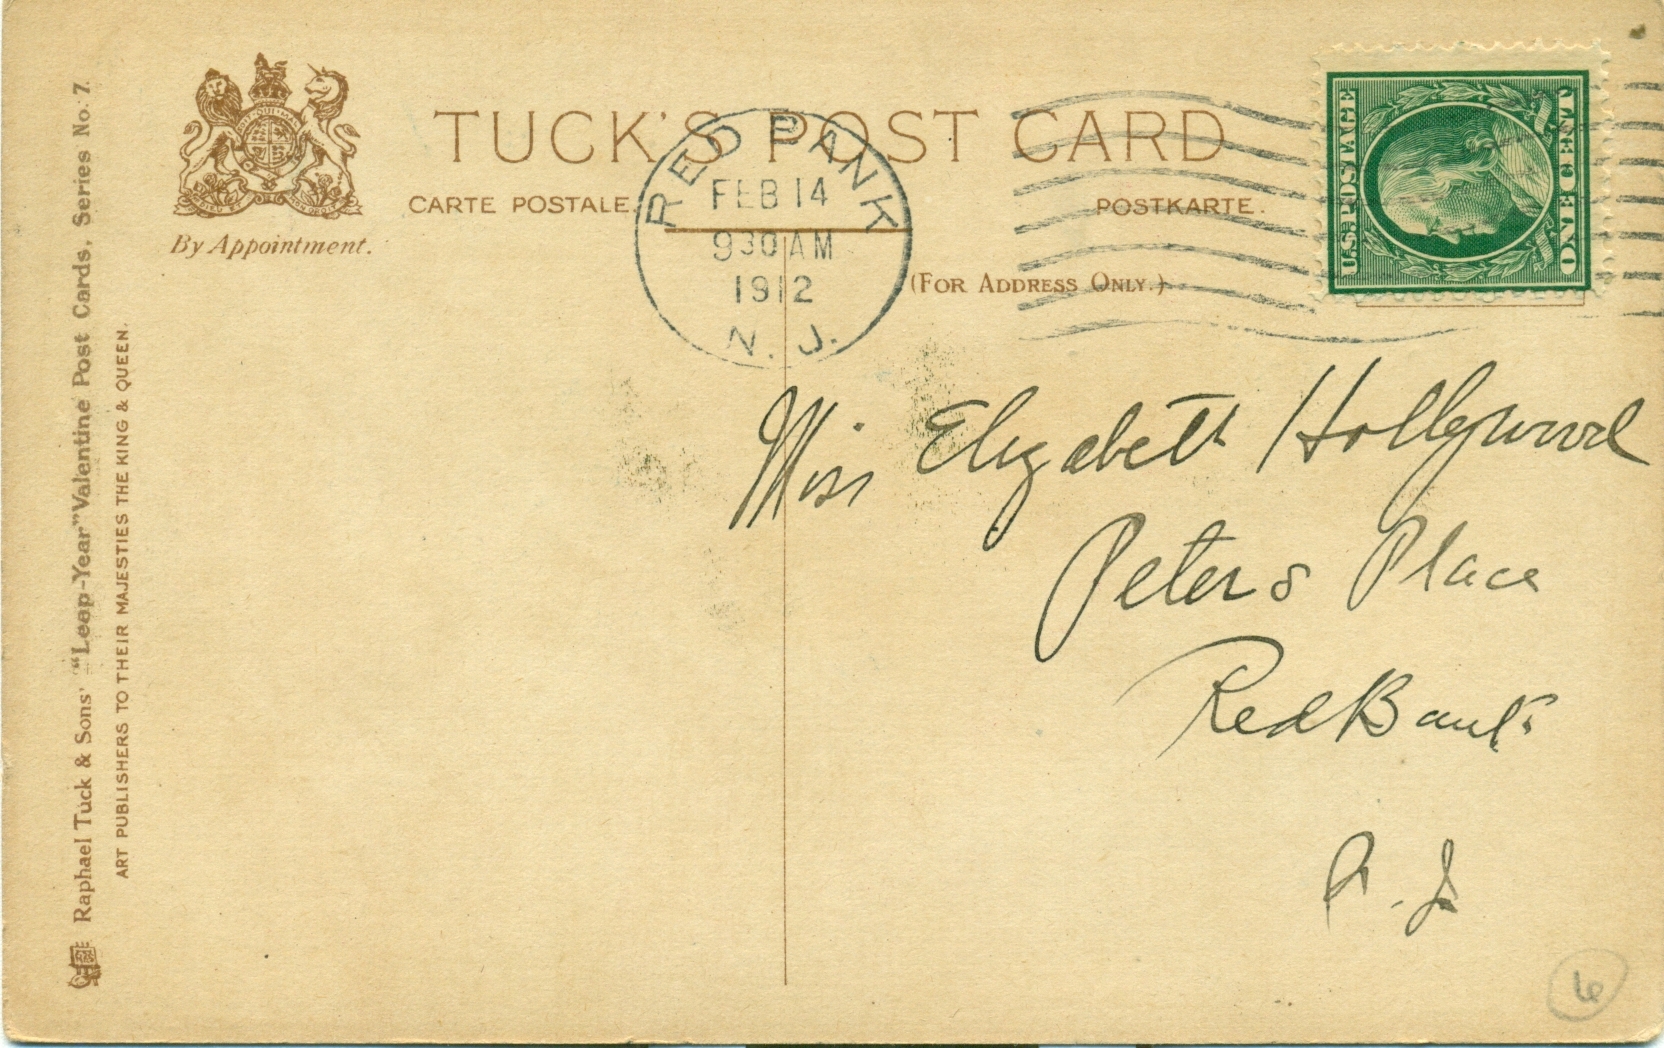 TUCK'S POST CARD
CARTE POSTALE.
POSTKARTE.
By Appointment.
(For Address Only.)
RED BANK
FEB 14
930 AM
1912
N. J.
U.S. POSTAGE
ONE CENT
Raphael Tuck & Sons' "Leap-Year" Valentine Post Cards, Series No. 7.
ART PUBLISHERS TO THEIR MAJESTIES THE KING & QUEEN.
Miss Elizabeth Hollywood
Peters Place
Red Bank
N. J.
6